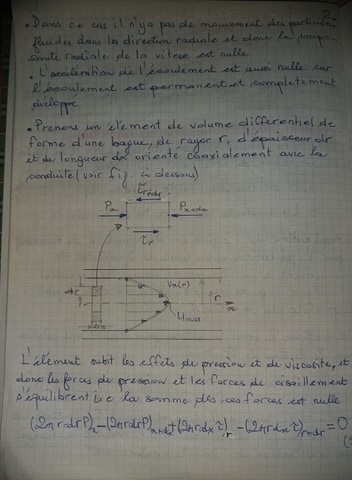 2
• Dans ce cas il n'y a pas de mouvement des particules
fluides dans la direction radiale et donc la compo-
sante radiale de la vitesse est nulle
• L'accélération de l'écoulement est aussi nulle car
l'écoulement est permanent et complètement
développé
• Prenons un élément de volume différentiel de
forme d'une bague, de rayon r, d'épaisseur dr
et de longueur dx orienté coaxialement avec la
conduite (voir fig. ci dessous)
τr+dr
Px Px+dx
τr
dr Vx(r) r
x
dx Umax
L'élément subit les effets de pression et de viscosité, et
donc les forces de pression et les forces de cisaillement
s'équilibrent i.e la somme des ces forces est nulle
(2πrdrP)x-(2πrdrP)x+dx+(2πrdxτ)r-(2πrdxτ)r+dr=0